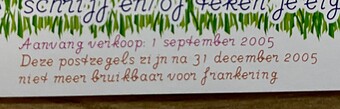 schrijf en/of teken je eig
Aanvang verkoop: 1 september 2005
Deze postzegels zijn na 31 december 2005
niet meer bruikbaar voor frankering